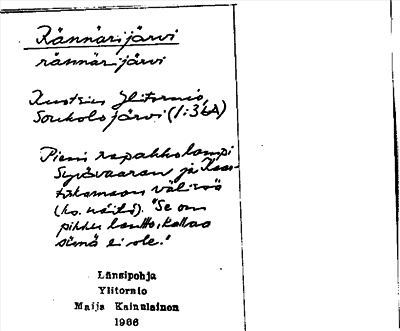 Rännärijärvi
rännärijärvi
Ylitornio,
Soukolojärvi (1:3LA)
Pieni rapakkolampi
Syvävaaran ja
välissä
"Se on
pikku lantto, kallaa
siinä ei ole."
Länsipohja
Ylitornio
Maija Kainulainen
1966